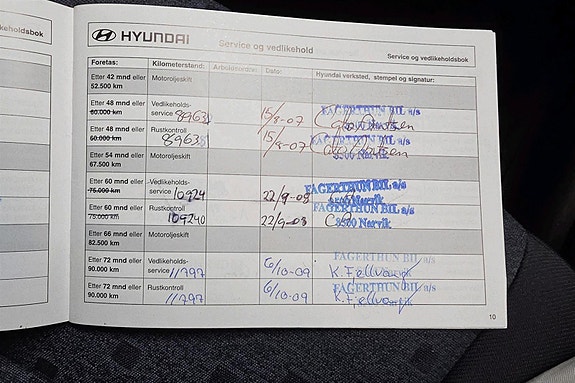 keholdsbok
HYUNDAI
Service og vedlikehold
Service og vedlikeholdsbok
Foretas: Kilometerstend: Arbeidsordre: Dato: Hyundai verksted, stempel og signatur:
Etter 42 mnd eller Motoroljeskift
52.500 km
Etter 48 mnd eller Vedlikeholds- 15/8-07 FAGERTHUN BIL a/s
60.000 km service 8963
Etter 48 mnd eller Rustkontroll 15/8-07 FAGERTHUN BIL a/s
60.000 km 8963 8500 Narvik
Etter 54 mnd eller Motoroljeskift
67.500 km
Etter 60 mnd eller Vedlikeholds- FAGERTHUN BIL a/s
75.000 km service 10924 22/9-08 8500 Narvik
Etter 60 mnd eller Rustkontroll FAGERTHUN BIL a/s
75.000 km 109240 22/9-08 8500 Narvik
Etter 66 mnd eller Motoroljeskift
82.500 km
Etter 72 mnd eller Vedlikeholds- 6/10-09 FAGERTHUN BIL a/s
90.000 km service 11797
Etter 72 mnd eller Rustkontroll 6/10-09 FAGERTHUN BIL a/s
90.000 km 11797
10